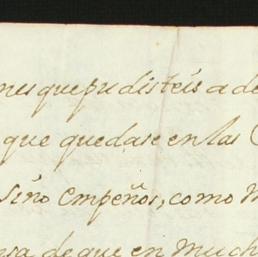 nes que pudisteis ade
que quedase en las
sino empeños, como
de que en much